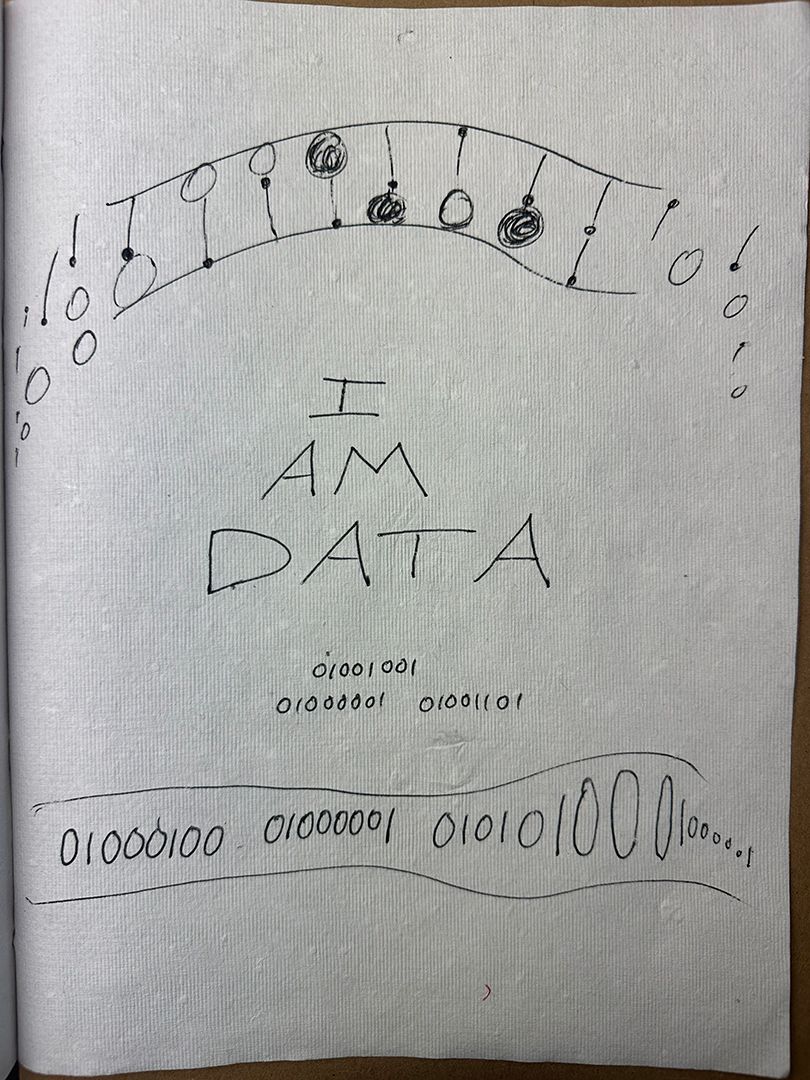 I
AM
DATA
01001001
01000001 01001101
01000100 01000001 01010100 01000001